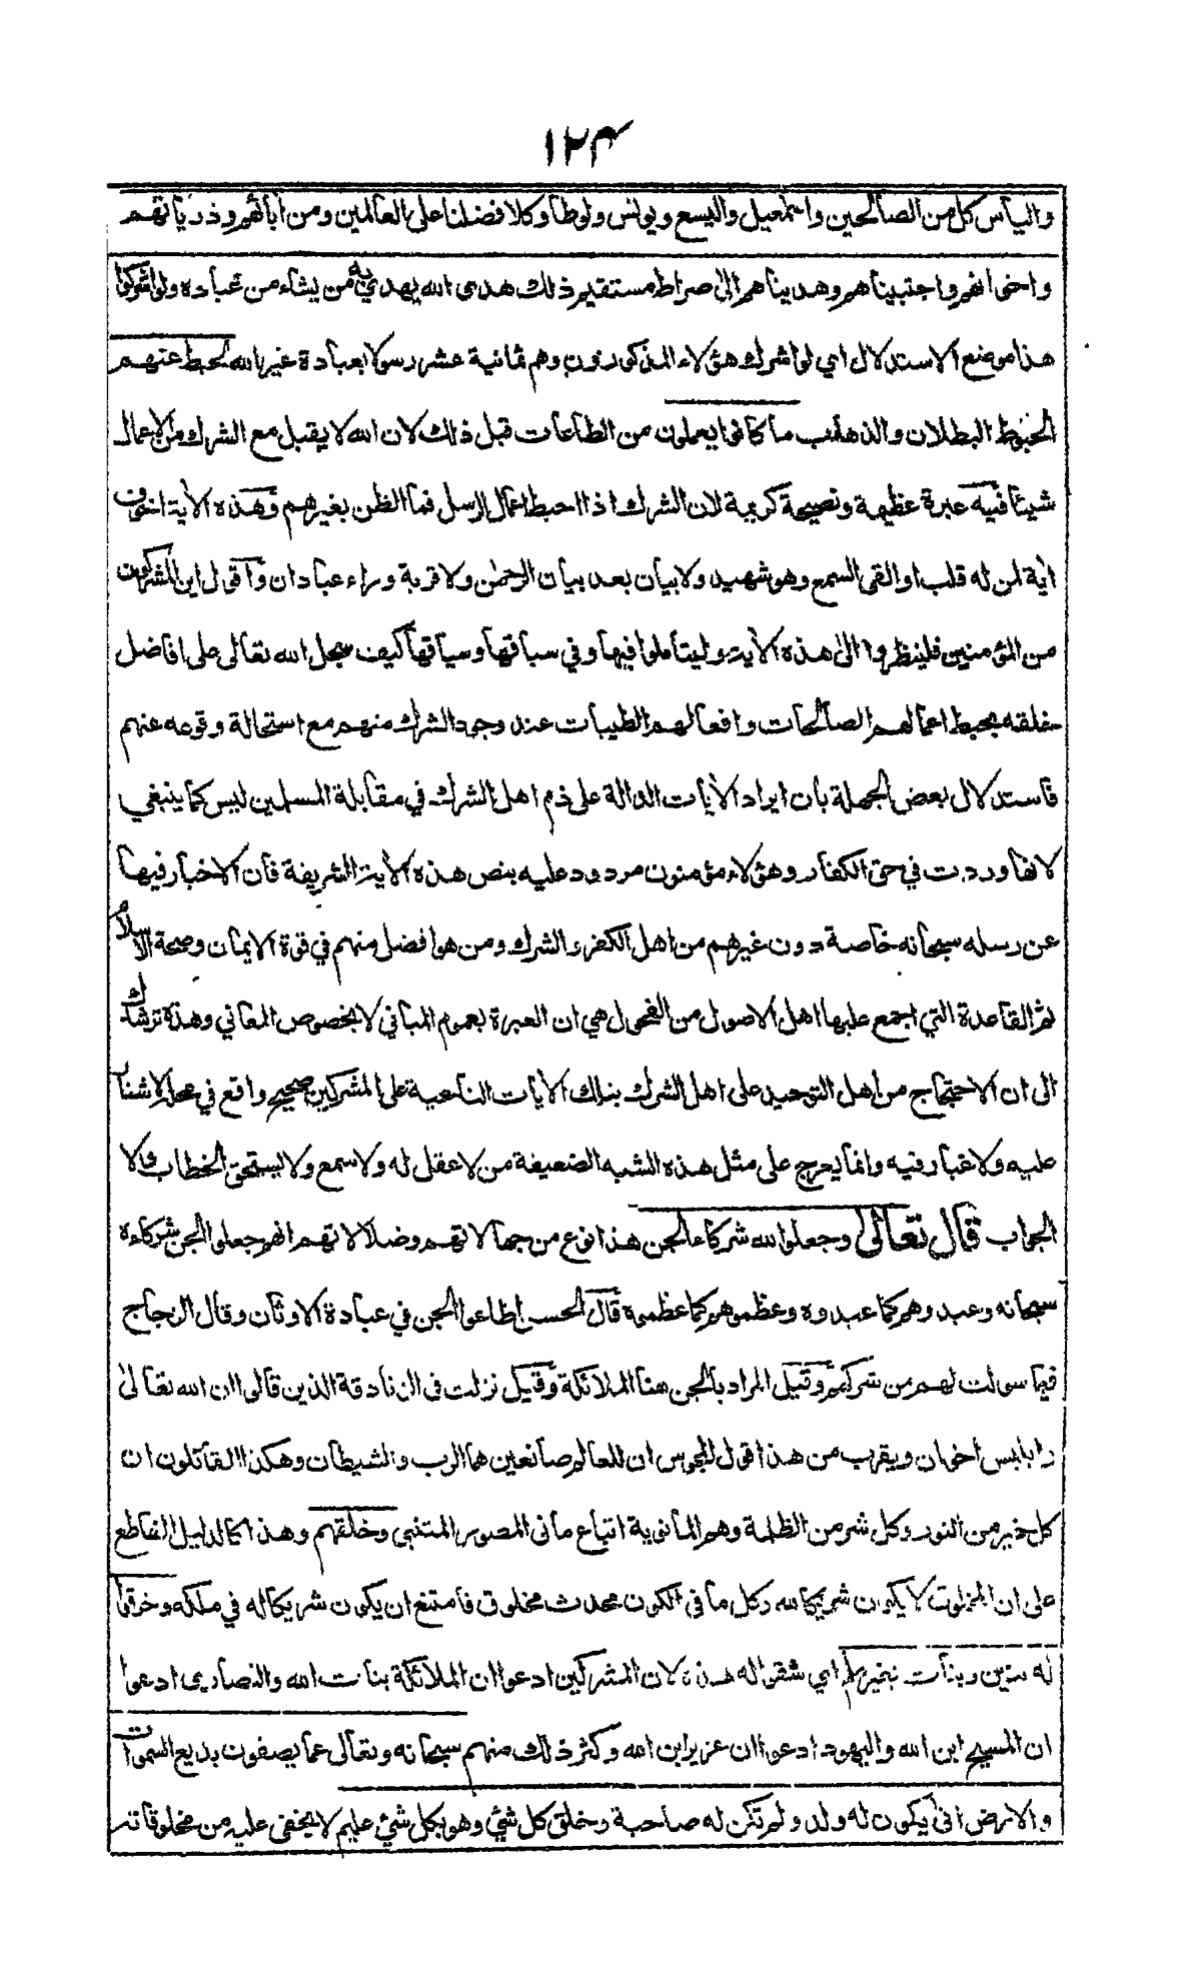 ١٢٤
والياس كل من الصالحين واسمعيل واليسع ويونس ولوطا وكلا فضلنا على العالمين ومن ابائهم وذرياتهم
واخوانهم واجتبيناهم وهديناهم الى صراط مستقيم ذلك هدى الله يهدي به من يشاء من عباده ولو اشركوا
هذا موضع الاستدلال اي لو اشرك هؤلاء المذكورون وهم ثمانية عشر رسولا بعبادة غير الله لحبط عنهم
الحبوط البطلان والذهاب ما كانوا يعملون من الطاعات قبل ذلك لان الله لا يقبل مع الشرك من الاعمال
شيئا فيه عبرة عظيمة ونصيحة كريمة لان الشرك اذا احبط اعمال الرسل فما الظن بغيرهم وهذه الأية اخوف
اية لمن له قلب او القى السمع وهو شهيد ولا بيان بعد بيان الرحمن ولا قرية وراء عبادان واقول اين المشركون
من المؤمنين فلينظروا الى هذه الأية وليتأملوا فيها وفي سباقها وسياقها كيف سجل الله تعالى على افاضل
خلقه بحبط اعمالهم الصالحات وافعالهم الطيبات عند وجود الشرك منهم مع استحالة وقوعه عنهم
فاستدلال بعض الجهلة بان ايراد الأيات الدالة على ذم اهل الشرك في مقابلة المسلمين ليس كما ينبغي
لانها وردت في حق الكفار وهؤلاء مؤمنون مردود عليه بنص هذه الأية الشريفة فان الاخبار فيها
عن رسله سبحانه خاصة دون غيرهم من اهل الكفر والشرك ومن هو افضل منهم في قوة الايمان وصحة الاسلام
ثم القاعدة التي اجمع عليها اهل الاصول من الفحول هي ان العبرة بعموم المباني لا بخصوص المعاني وهذه ترشدك
الى ان الاحتجاج من اهل التوحيد على اهل الشرك بتلك الأيات الناعية على المشركين صحيح واقع في محله لا شنار
عليه ولا غبار فيه وانما يعرج على مثل هذه الشبه الضعيفة من لا عقل له ولا سمع ولا يستحق الخطاب ولا
الجواب قال تعالى وجعلوا لله شركاء الجن هذا نوع من جهالاتهم وضلالاتهم انهم جعلوا الجن شركاءه
سبحانه وعبدوهم كما عبدوه وعظموهم كما عظموه قال الحسن اطاعوا الجن في عبادة الاوثان وقال الزجاج
فيما سولت لهم من شركهم وقيل المراد بالجن هنا الملائكة وقيل نزلت في الزنادقة الذين قالوا ان الله تعالى
وابليس أخوان ويقرب من هذا قول المجوس ان للعالم صانعين هما الرب والشيطان وهكذا القائلون ان
كل خير من النور وكل شر من الظلمة وهم المانوية اتباع مانى المصور المتنبي وخلقهم وهذا كالدليل القاطع
على ان المخلوق لا يكون شريكا لله وكل ما في الكون محدث مخلوق فامتنع ان يكون شريكا له في ملكه وخرقوا
له بنين وبنات بغير علم اي شقوا له هذه لان المشركين ادعوا ان الملائكة بنات الله والنصارى ادعوا
ان المسيح ابن الله واليهود ادعوا ان عزير ابن الله وكثر ذلك منهم سبحانه وتعالى عما يصفون بديع السموات
والارض انى يكون له ولد ولم تكن له صاحبة وخلق كل شئ وهو بكل شئ عليم لا يخفى عليه من مخلوقاته